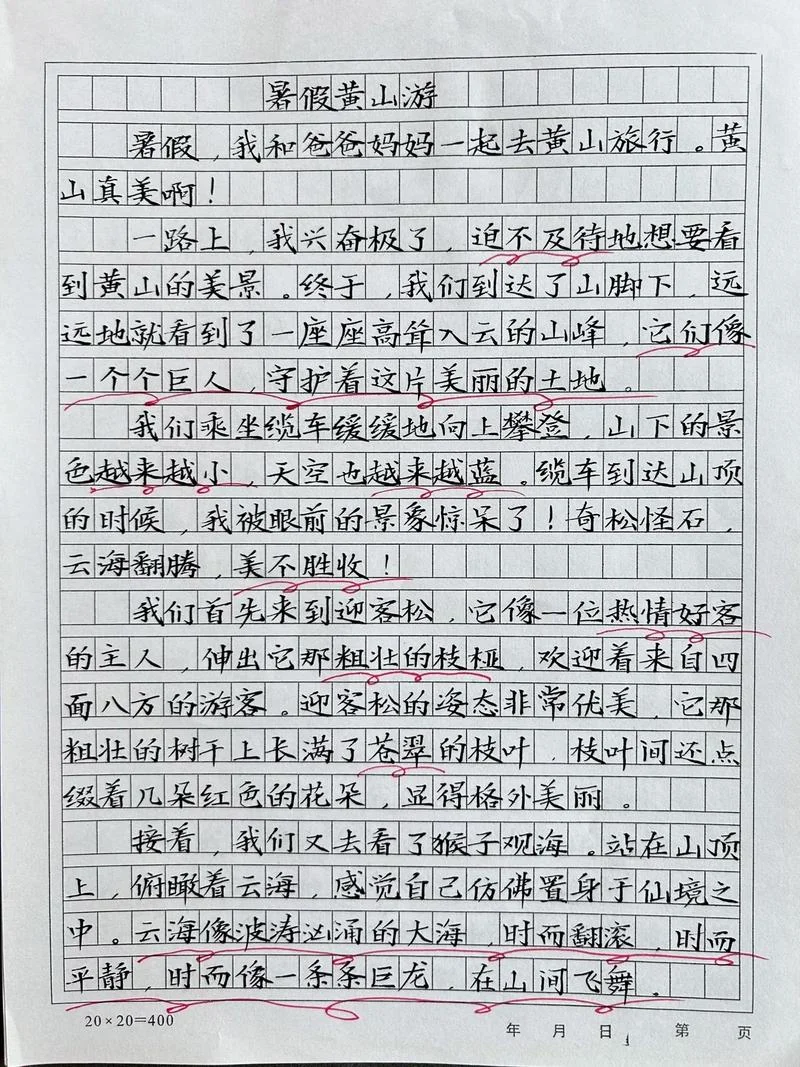 暑假黄山游
暑假，我和爸爸妈妈一起去黄山旅行。黄
山真美啊！
一路上，我兴奋极了，迫不及待地想要看
到黄山的美景。终于，我们到达了山脚下，远
远地就看到了一座座高耸入云的山峰，它们像
一个个巨人，守护着这片美丽的土地。
我们乘坐缆车缓缓地向上攀登，山下的景
色越来越小，天空也越来越蓝。缆车到达山顶
的时候，我被眼前的景象惊呆了！奇松怪石，
云海翻腾，美不胜收！
我们首先来到迎客松，它像一位热情好客
的主人，伸出它那粗壮的枝桠，欢迎着来自四
面八方的游客。迎客松的姿态非常优美，它那
粗壮的树干上长满了苍翠的枝叶，枝叶间还点
缀着几朵红色的花朵，显得格外美丽。
接着，我们又去看了猴子观海。站在山顶
上，俯瞰着云海，感觉自己仿佛置身于仙境之
中。云海像波涛汹涌的大海，时而翻滚，时而
平静，时而像一条条巨龙，在山间飞舞。
20×20=400 年 月 日 第 页